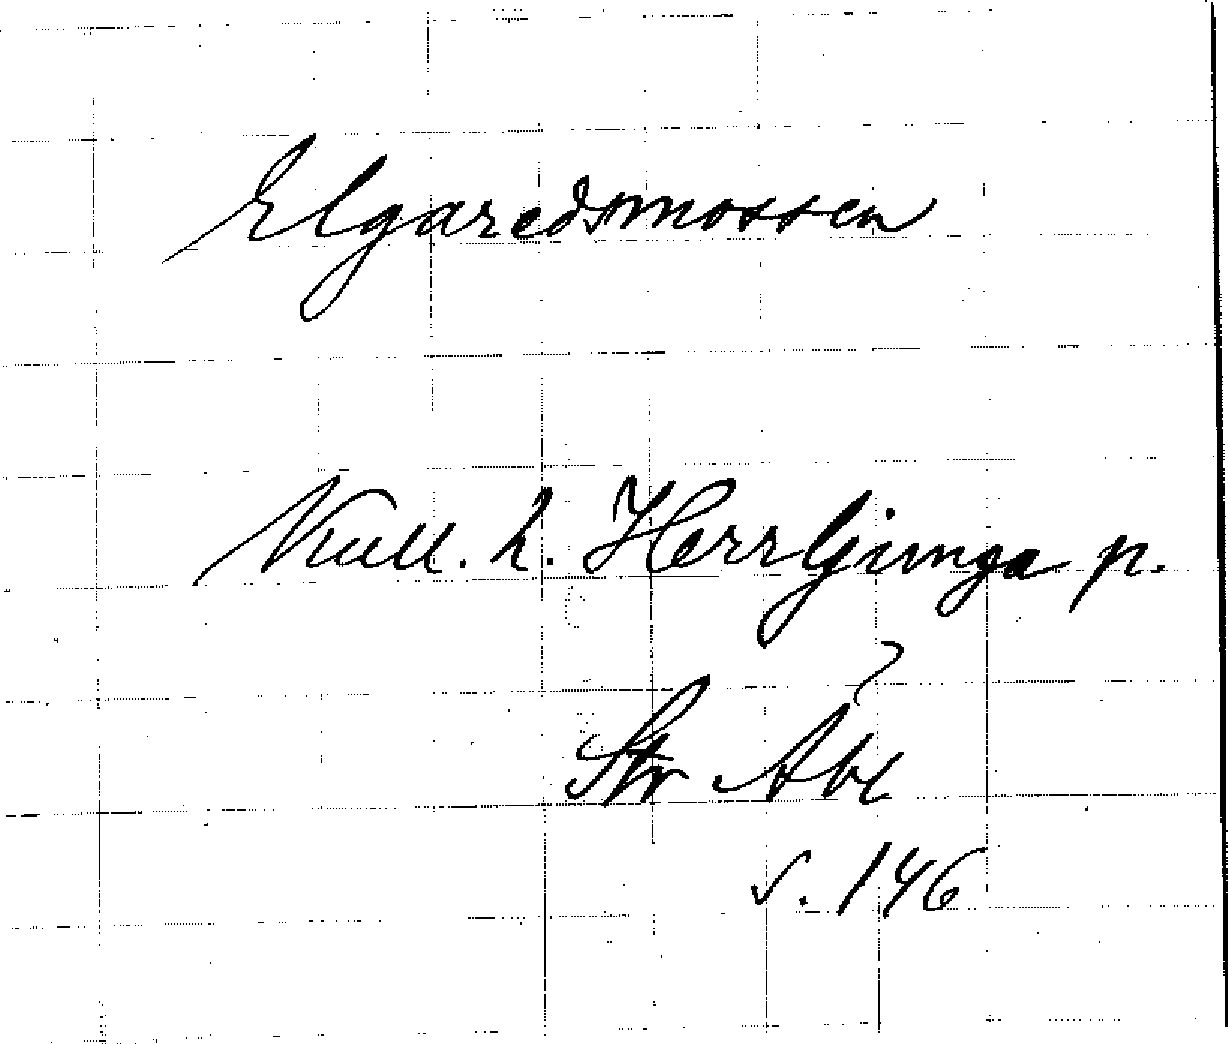 Elgaredsmossen
Kull. h. Herrljunga p.
Str Abl
s. 146